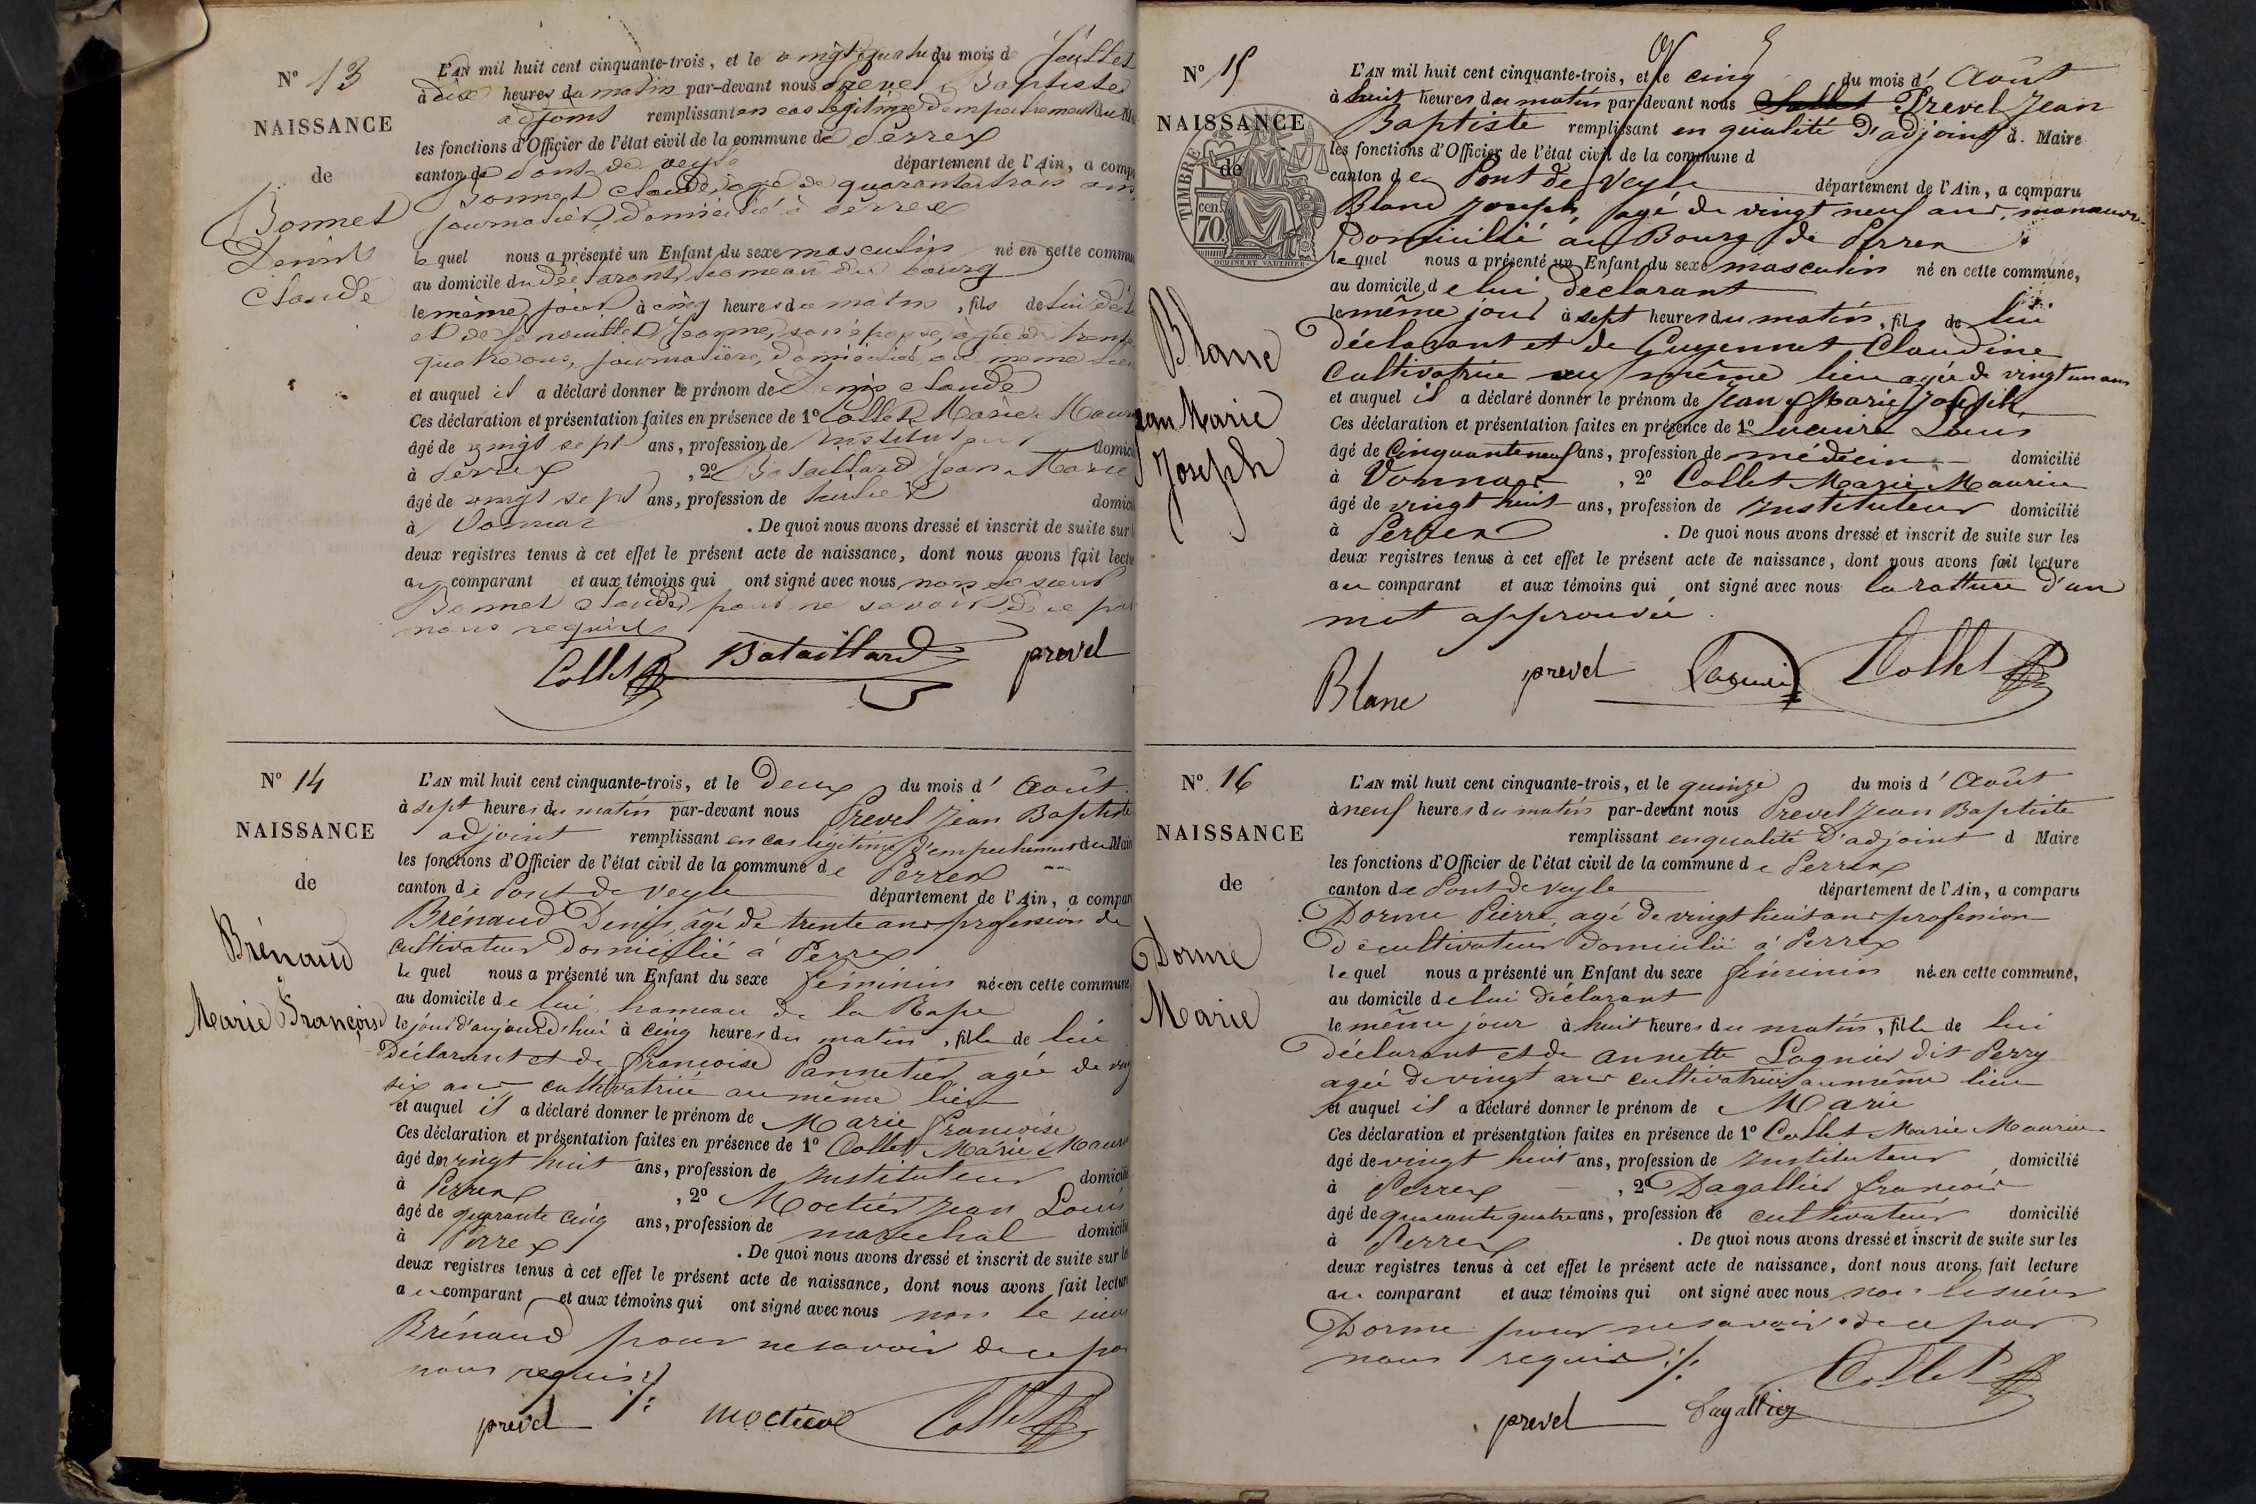 N° 13
NAISSANCE
de
Bonnet
Denis
Claude
L'AN mil huit cent cinquante-trois, et le vingt quatre du mois de Juillet
à dix heures du matin par-devant nous prevel Baptiste
adjoint remplissant en cas légitime d'empechement du
les fonctions d'Officier de l'état civil de la commune de Perrex
canton de Pont de veyle département de l'Ain, a compa
Bonnet Claude, agé de quarante trois ans
journalier, domicilié à Perrex
lequel nous a présenté un Enfant du sexe masculin né en cette commu
au domicile du déclarant hameau du bourg
le même jour à cinq heures du matin, fils de lui
et de Jeanne, son épouse, agée de trente
quatre ans, journalière, domiciliée au meme lieu
et auquel il a déclaré donner le prénom de Denis Claude
Ces déclaration et présentation faites en présence de 1° Collet Marie
âgé de vingt sept ans, profession de Instituteur domici
à Perrex , 2° Bataillard Jean Marie
âgé de vingt sept ans, profession de domici
à Vonnas . De quoi nous avons dressé et inscrit de suite sur
deux registres tenus à cet effet le présent acte de naissance, dont nous avons fait lectu
au comparant et aux témoins qui ont signé avec nous non le sieur
Bonnet Claude pour ne savoir de ce par
nous requis
Collet Bataillard prevel
N° 14
NAISSANCE
de
Brénaud
Marie Françoise
L'AN mil huit cent cinquante-trois, et le Deux du mois d' Août
à sept heures du matin par-devant nous Prevel Jean Baptiste
adjoint remplissant en cas légitime d'empechement du Mair
les fonctions d'Officier de l'état civil de la commune de Perrex
canton de Pont de Veyle département de l'Ain, a compar
Brénaud Denis, âgé de trente ans profession de
cultivateur domicilié à Perrex
lequel nous a présenté un Enfant du sexe féminin née en cette commune
au domicile de lui hameau de la Rape
le jour d'aujourd'hui à cinq heures du matin, fille de lui
Déclarant et de françoise Pannetier agée de ving
six ans cultivatrice au même lieu
et auquel il a déclaré donner le prénom de Marie françoise
Ces déclaration et présentation faites en présence de 1° Collet Marie Mauri
âgé de vingt huit ans, profession de Instituteur domicili
à Perrex , 2° Moctier Jean Louis
âgé de quarante cinq ans, profession de marechal domicili
à Perrex . De quoi nous avons dressé et inscrit de suite sur les
deux registres tenus à cet effet le présent acte de naissance, dont nous avons fait lecture
au comparant et aux témoins qui ont signé avec nous non le sieur
Brénaud pour ne savoir de ce par
nous requis ./.
prevel moctier Collet
N° 15
NAISSANCE
de
TIMBRE
cen
70
OUDINÉ ET VAUTHIER
Blanc
Jean Marie
Joseph
L'AN mil huit cent cinquante-trois, et le cinq du mois d' Août
à huit heures du matin par-devant nous Prevel Jean
Baptiste remplissant en qualité d'adjoint d. Maire
les fonctions d'Officier de l'état civil de la commune d
canton de Pont de Veyle département de l'Ain, a comparu
Blanc Joseph, agé de vingt neuf ans, manœuvre
Domicilié au Bourg de Perrex
lequel nous a présenté un Enfant du sexe masculin né en cette commune,
au domicile de lui déclarant
le même jour à sept heures du matin, fils de lui
déclarant et de Guyennet Claudine
cultivatrice au même lieu agée de vingt un ans
et auquel il a déclaré donner le prénom de Jean Marie Joseph
Ces déclaration et présentation faites en présence de 1° Louis
âgé de Cinquante neuf ans, profession de médecin domicilié
à Vonnas , 2° Collet Marie Maurice
âgé de vingt huit ans, profession de Instituteur domicilié
à Perrex . De quoi nous avons dressé et inscrit de suite sur les
deux registres tenus à cet effet le présent acte de naissance, dont nous avons fait lecture
au comparant et aux témoins qui ont signé avec nous la rature d'un
mot approuvée.
Blanc prevel Collet
N° 16
NAISSANCE
de
Dorme
Marie
L'AN mil huit cent cinquante-trois, et le quinze du mois d' Août
à neuf heures du matin par-devant nous Prevel Jean Baptiste
remplissant en qualité d'adjoint d Maire
les fonctions d'Officier de l'état civil de la commune de Perrex
canton de Pont de Veyle département de l'Ain, a comparu
Dorme Pierre, agé de vingt huit ans profession
de cultivateur domicilié à Perrex
lequel nous a présenté un Enfant du sexe féminin née en cette commune,
au domicile de lui déclarant
le même jour à huit heures du matin, fille de lui
déclarant et de annette Lagnier dit Perry
agée de vingt ans cultivatrice au même lieu
et auquel il a déclaré donner le prénom de Marie
Ces déclaration et présentation faites en présence de 1° Collet Marie Maurice
âgé de vingt huit ans, profession de Instituteur domicilié
à Perrex , 2° Dagallier françois
âgé de quarante quatre ans, profession de cultivateur domicilié
à Perrex . De quoi nous avons dressé et inscrit de suite sur les
deux registres tenus à cet effet le présent acte de naissance, dont nous avons fait lecture
au comparant et aux témoins qui ont signé avec nous non le sieur
Dorme pour ne savoir de ce par
nous requis ./.
prevel Dagallier Collet